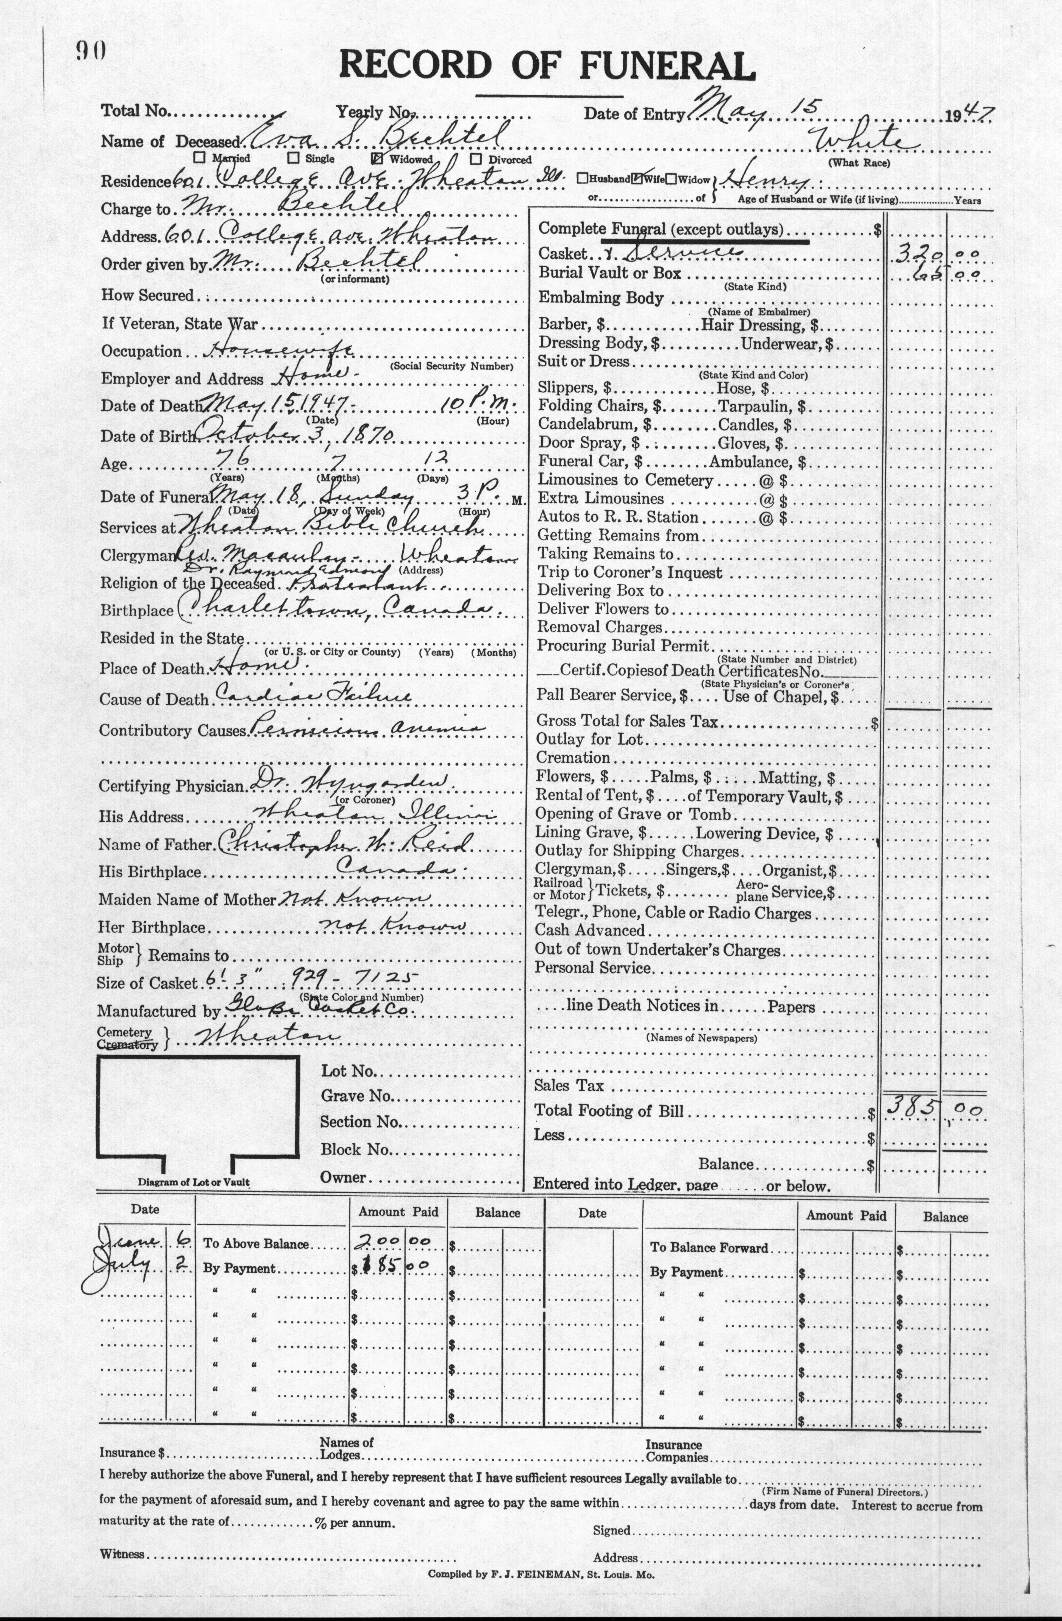 90
RECORD OF FUNERAL
Total No. Yearly No. Date of Entry May 15 1947
Name of Deceased Eva S. Bechtel White
Married Single Widowed Divorced (What Race)
Residence 601 College Ave. Wheaton Ill. Husband Wife Widow } Henry
or of Age of Husband or Wife (if living) Years
Charge to Mr. Bechtel
Address 601 College ave. Wheaton
Order given by Mr. Bechtel
(or informant)
How Secured
If Veteran, State War
Occupation Housewife
(Social Security Number)
Employer and Address Home
Date of Death May 15, 1947 10 P.M.
(Date) (Hour)
Date of Birth October 3, 1870
Age 76 7 12
(Years) (Months) (Days)
Date of Funeral May 18, Sunday 3 P. M.
(Date) (Day of Week) (Hour)
Services at Wheaton Bible Church
Clergyman Rev. Macaulay - Wheaton
Dr. Raymond Edmond (Address)
Religion of the Deceased Protestant
Birthplace Charlettown, Canada.
Resided in the State
(or U. S. or City or County) (Years) (Months)
Place of Death Home
Cause of Death Cardiac Failure
Contributory Causes Pernicious anemia
Certifying Physician Dr. Wyngarden
(or Coroner)
His Address Wheaton Illinois
Name of Father Christopher W. Reid
His Birthplace Canada
Maiden Name of Mother Not Known
Her Birthplace not Known
Motor Ship } Remains to
Size of Casket 6' 3" 929 - 7125
(State Color and Number)
Manufactured by Globe Casket Co.
Cemetery
Crematory } Wheaton
Lot No.
Grave No.
Section No.
Block No.
Owner
Diagram of Lot or Vault
Complete Funeral (except outlays) $
Casket & Services 320 00
Burial Vault or Box 65 00
(State Kind)
Embalming Body
(Name of Embalmer)
Barber, $ Hair Dressing, $
Dressing Body, $ Underwear, $
Suit or Dress
(State Kind and Color)
Slippers, $ Hose, $
Folding Chairs, $ Tarpaulin, $
Candelabrum, $ Candles, $
Door Spray, $ Gloves, $
Funeral Car, $ Ambulance, $
Limousines to Cemetery @ $
Extra Limousines @ $
Autos to R. R. Station @ $
Getting Remains from
Taking Remains to
Trip to Coroner's Inquest
Delivering Box to
Deliver Flowers to
Removal Charges
Procuring Burial Permit
(State Number and District)
Certif. Copies of Death Certificates No.
(State Physician's or Coroner's
Pall Bearer Service, $ Use of Chapel, $
Gross Total for Sales Tax $
Outlay for Lot
Cremation
Flowers, $ Palms, $ Matting, $
Rental of Tent, $ of Temporary Vault, $
Opening of Grave or Tomb
Lining Grave, $ Lowering Device, $
Outlay for Shipping Charges
Clergyman, $ Singers, $ Organist, $
Railroad or Motor } Tickets, $ Aero-plane Service, $
Telegr., Phone, Cable or Radio Charges
Cash Advanced
Out of town Undertaker's Charges
Personal Service
line Death Notices in Papers
(Names of Newspapers)
Sales Tax
Total Footing of Bill $ 385 00
Less $
Balance $
Entered into Ledger, page or below.
Date Amount Paid Balance Date Amount Paid Balance
June 6 To Above Balance 200 00 $ To Balance Forward $
July 2 By Payment $ 185 00 $ By Payment $ $
" " $ $ " " $ $
" " $ $ " " $ $
" " $ $ " " $ $
" " $ $ " " $ $
" " $ $ " " $ $
" " $ $ " " $ $
Insurance $ Names of Lodges Insurance Companies
I hereby authorize the above Funeral, and I hereby represent that I have sufficient resources Legally available to
(Firm Name of Funeral Directors.)
for the payment of aforesaid sum, and I hereby covenant and agree to pay the same within days from date. Interest to accrue from
maturity at the rate of % per annum.
Signed
Witness Address
Compiled by F. J. FEINEMAN, St. Louis. Mo.